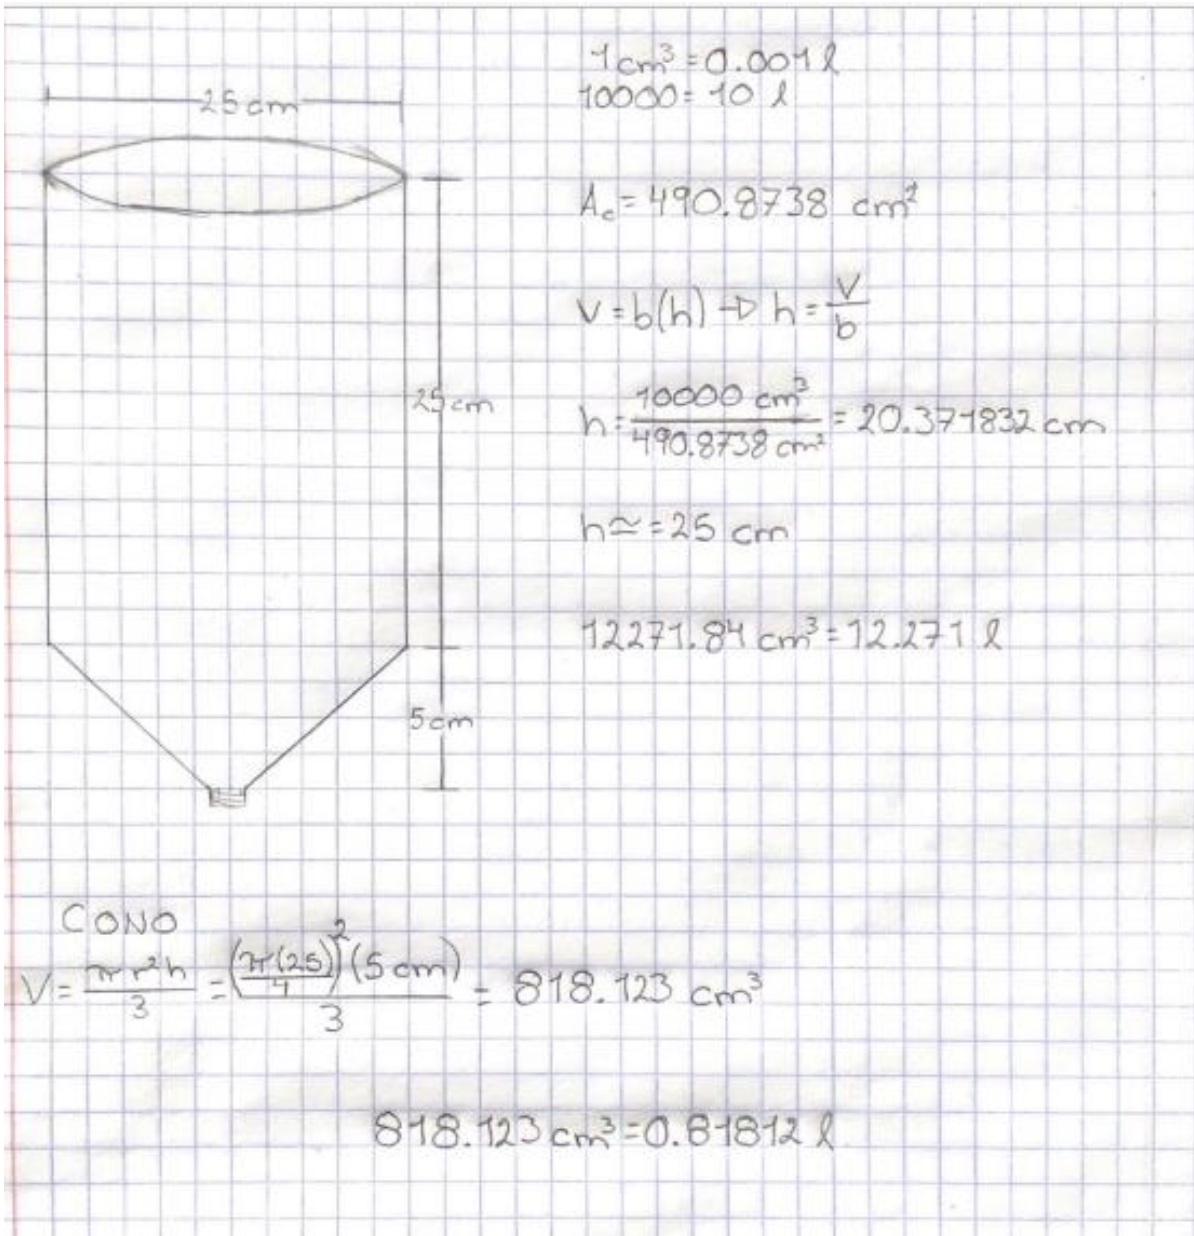 1 cm³ = 0.001 l
10000 = 10 l
25 cm
Ac = 490.8738 cm²
V = b(h) → h = V/b
25 cm
h = 10000 cm³/490.8738 cm² = 20.371832 cm
h ≃ = 25 cm
12271.84 cm³ = 12.271 l
5 cm
CONO
V = πr²h/3 = (π(25)/4)²(5 cm)/3 = 818.123 cm³
818.123 cm³ = 0.81812 l